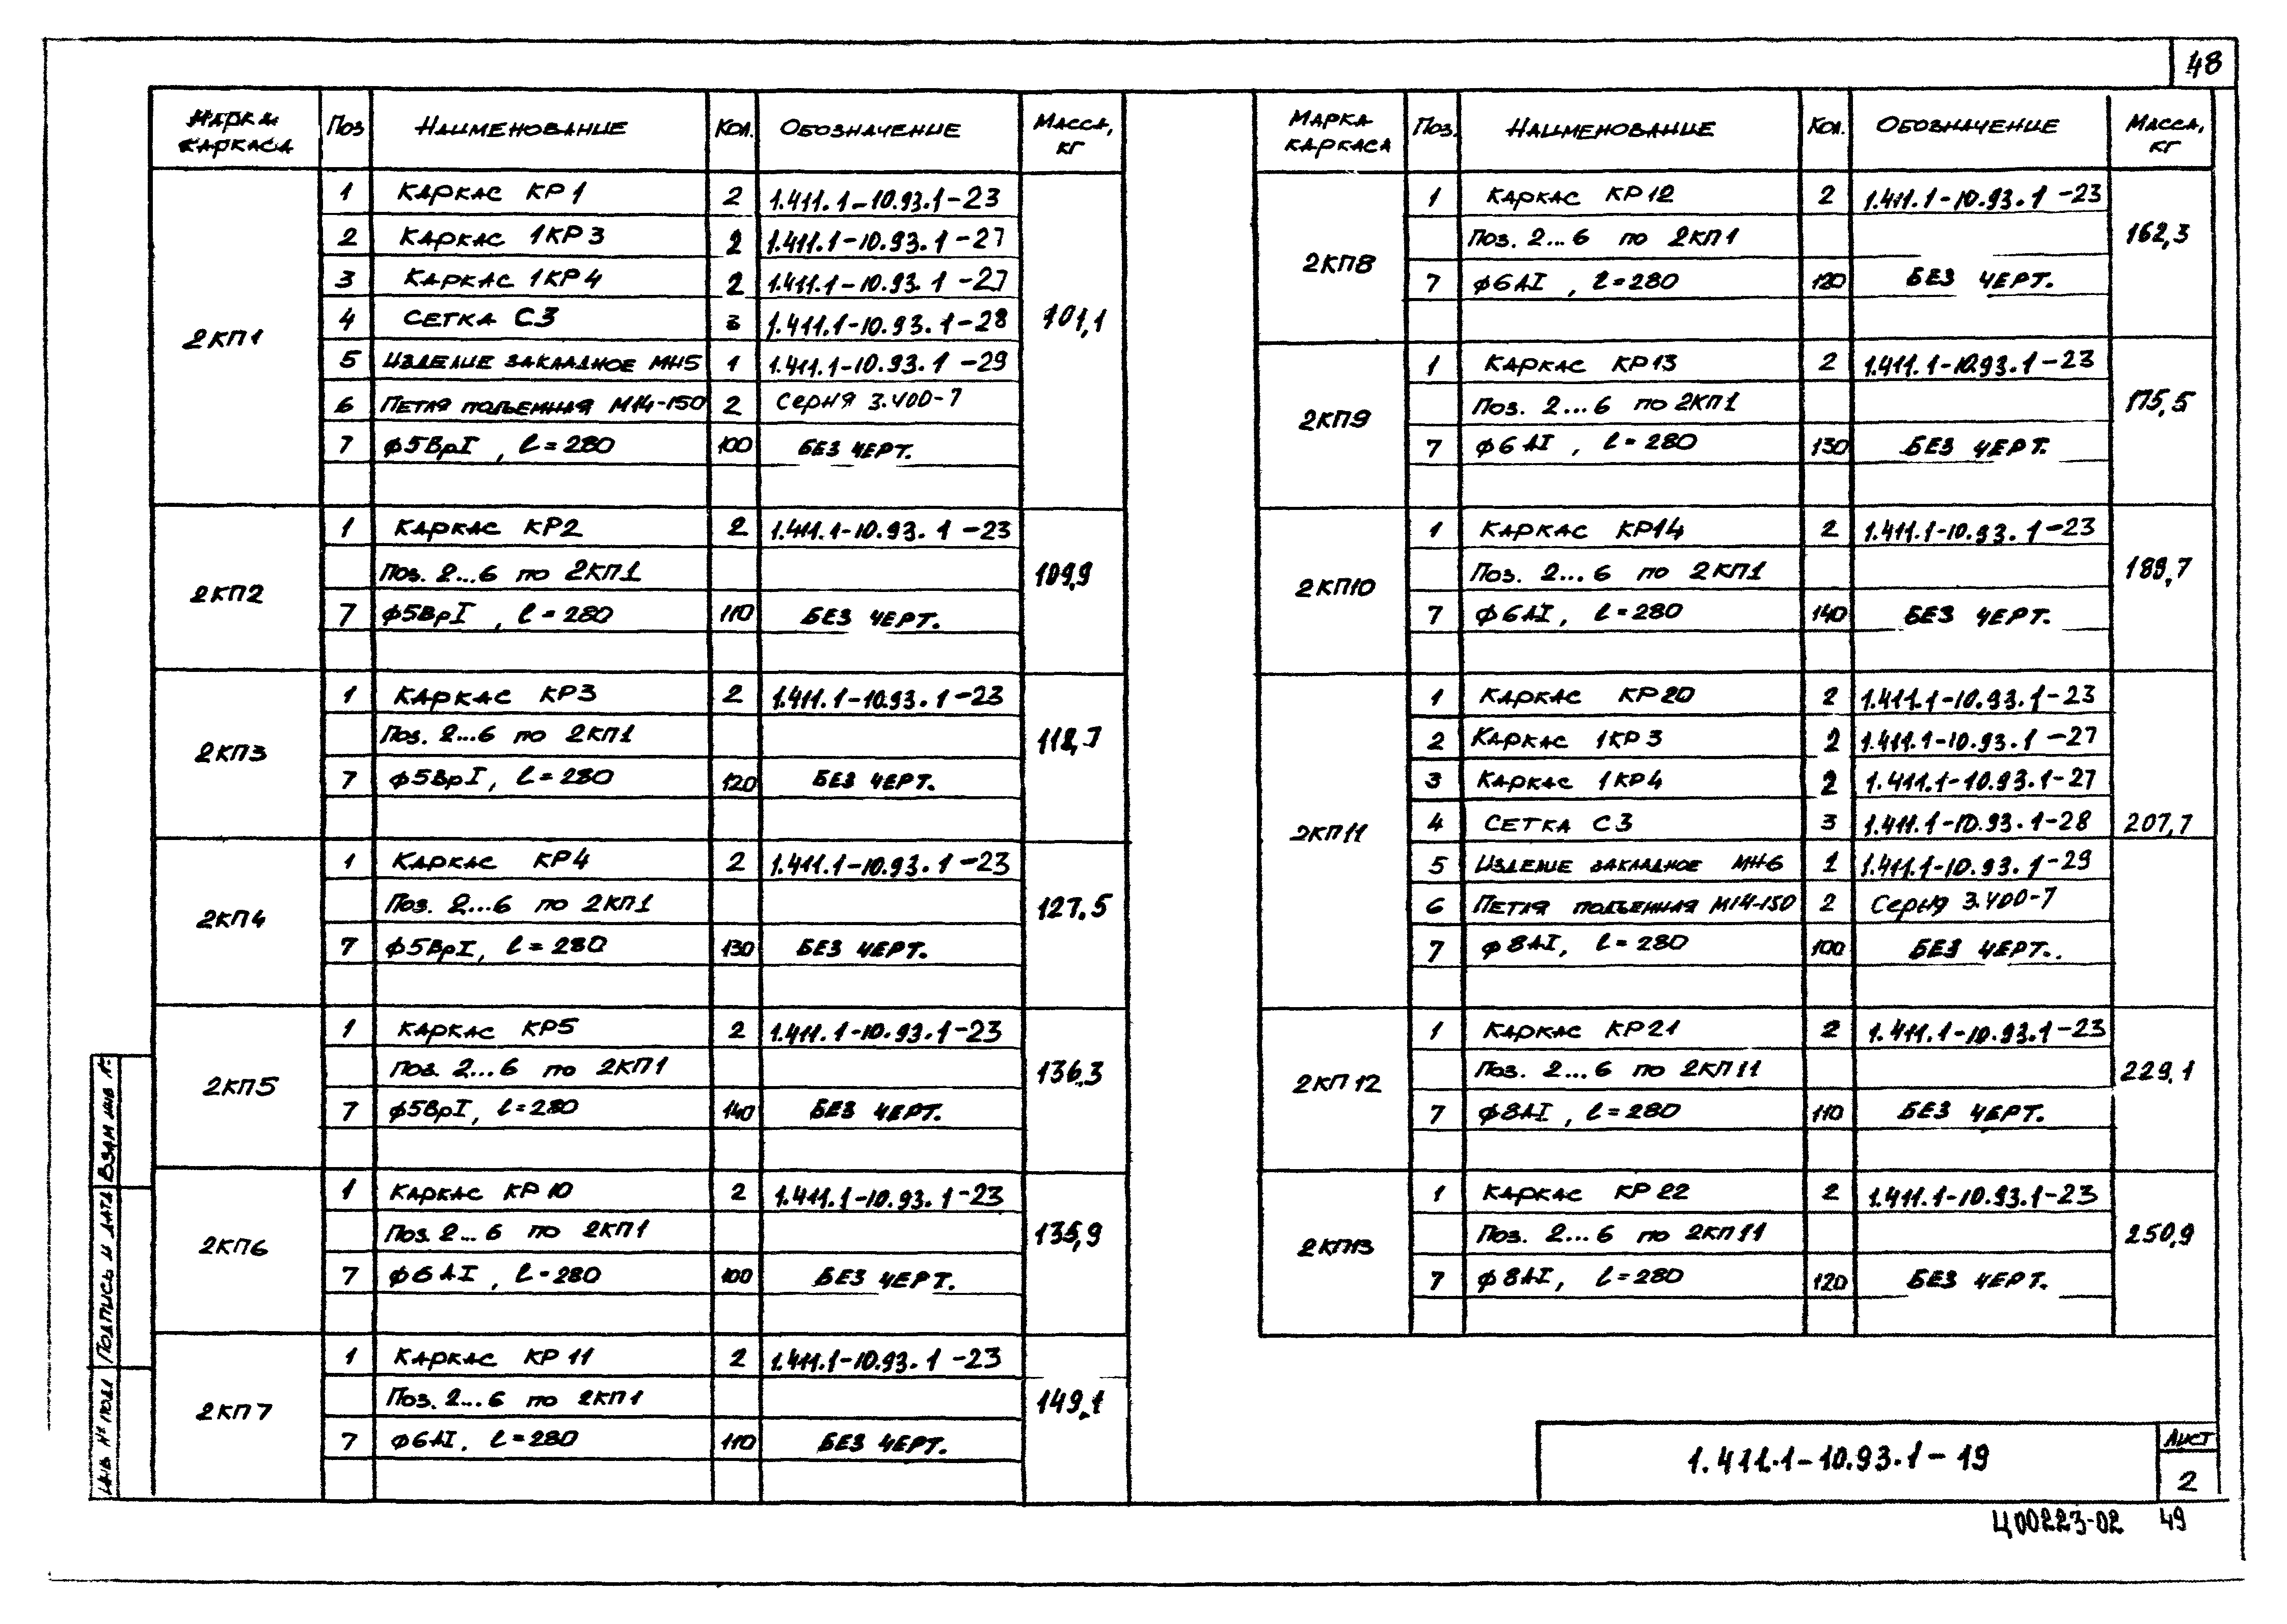 48
Марка каркаса Поз Наименование Кол. Обозначение Масса, кг
2КП1 101,1
1 Каркас КР1 2 1.411.1-10.93.1-23
2 Каркас 1КР3 2 1.411.1-10.93.1-27
3 Каркас 1КР4 2 1.411.1-10.93.1-27
4 Сетка С3 3 1.411.1-10.93.1-28
5 Изделие закладное МН5 1 1.411.1-10.93.1-29
6 Петля подъемная М14-150 2 Серия 3.400-7
7 ϕ5ВрI, ℓ=280 100 без черт.
2КП2 109,9
1 Каркас КР2 2 1.411.1-10.93.1-23
Поз. 2...6 по 2КП1
7 ϕ5ВрI, ℓ=280 110 без черт.
2КП3 118,7
1 Каркас КР3 2 1.411.1-10.93.1-23
Поз. 2...6 по 2КП1
7 ϕ5ВрI, ℓ=280 120 без черт.
2КП4 127,5
1 Каркас КР4 2 1.411.1-10.93.1-23
Поз. 2...6 по 2КП1
7 ϕ5ВрI, ℓ=280 130 без черт.
2КП5 136,3
1 Каркас КР5 2 1.411.1-10.93.1-23
Поз. 2...6 по 2КП1
7 ϕ5ВрI, ℓ=280 140 без черт.
2КП6 135,9
1 Каркас КР10 2 1.411.1-10.93.1-23
Поз. 2...6 по 2КП1
7 ϕ6АI, ℓ=280 100 без черт.
2КП7 149,1
1 Каркас КР11 2 1.411.1-10.93.1-23
Поз. 2...6 по 2КП1
7 ϕ6АI, ℓ=280 110 без черт.
Марка каркаса Поз. Наименование Кол. Обозначение Масса, кг
2КП8 162,3
1 Каркас КР12 2 1.411.1-10.93.1-23
Поз. 2...6 по 2КП1
7 ϕ6АI, ℓ=280 120 без черт.
2КП9 175,5
1 Каркас КР13 2 1.411.1-10.93.1-23
Поз. 2...6 по 2КП1
7 ϕ6АI, ℓ=280 130 без черт.
2КП10 189,7
1 Каркас КР14 2 1.411.1-10.93.1-23
Поз. 2...6 по 2КП1
7 ϕ6АI, ℓ=280 140 без черт.
2КП11 207,7
1 Каркас КР20 2 1.411.1-10.93.1-23
2 Каркас 1КР3 2 1.411.1-10.93.1-27
3 Каркас 1КР4 2 1.411.1-10.93.1-27
4 Сетка С3 3 1.411.1-10.93.1-28
5 Изделие закладное МН6 1 1.411.1-10.93.1-29
6 Петля подъемная М14-150 2 Серия 3.400-7
7 ϕ8АI, ℓ=280 100 без черт.
2КП12 229,1
1 Каркас КР21 2 1.411.1-10.93.1-23
Поз. 2...6 по 2КП11
7 ϕ8АI, ℓ=280 110 без черт.
2КП13 250,9
1 Каркас КР22 2 1.411.1-10.93.1-23
Поз. 2...6 по 2КП11
7 ϕ8АI, ℓ=280 120 без черт.
Инв № подл Подпись и дата Взам инв №
1.411.1-10.93.1-19
Лист
2
Ц00223-02 49